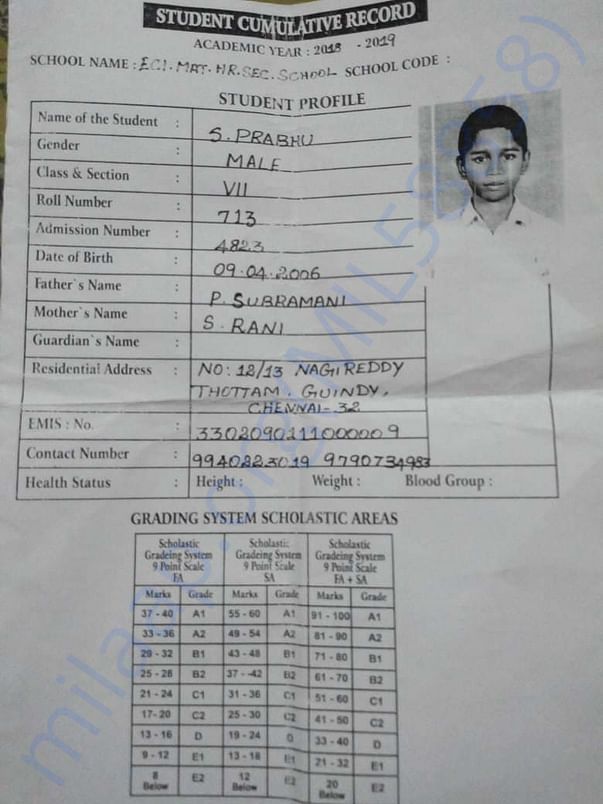 STUDENT CUMULATIVE RECORD
ACADEMIC YEAR : 2018 - 2019
SCHOOL NAME : ECI. MAT. HR. SEC. SCHOOL SCHOOL CODE :
STUDENT PROFILE
Name of the Student : S. PRABHU
Gender : MALE
Class & Section : VII
Roll Number : 713
Admission Number : 4823
Date of Birth : 09.04.2006
Father`s Name : P. SUBRAMANI
Mother`s Name : S. RANI
Guardian`s Name :
Residential Address : NO: 12/13 NAGI REDDY
THOTTAM. GUINDY,
CHENNAI-32
EMIS : No. : 33020902110000 9
Contact Number : 9940223019 9790734983
Health Status : Height : Weight : Blood Group :
GRADING SYSTEM SCHOLASTIC AREAS
Scholastic Scholastic Scholastic
Gradeing System Gradeing System Gradeing System
9 Point Scale 9 Point Scale 9 Point Scale
FA SA FA + SA
Marks Grade Marks Grade Marks Grade
37 - 40 A1 55 - 60 A1 91 - 100 A1
33 - 36 A2 49 - 54 A2 81 - 90 A2
29 - 32 B1 43 - 48 B1 71 - 80 B1
25 - 28 B2 37 - -42 B2 61 - 70 B2
21 - 24 C1 31 - 36 C1 51 - 60 C1
17- 20 C2 25 - 30 C2 41 - 50 C2
13 - 16 D 19 - 24 D 33 - 40 D
9 - 12 E1 13 - 18 E1 21 - 32 E1
8 Below E2 12 Below E2 20 Below E2